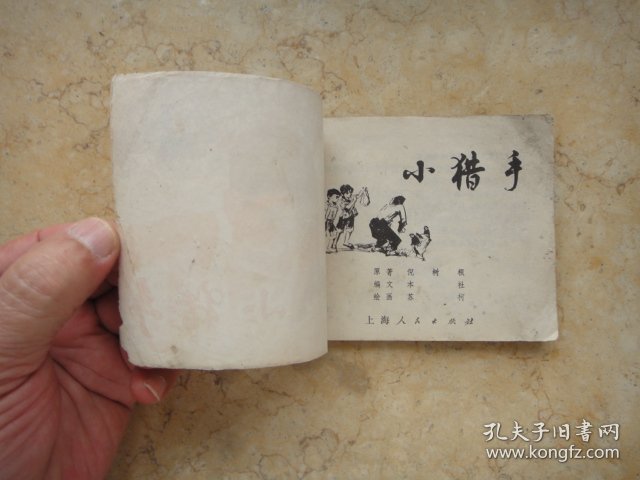 小猎手
原著 倪树根
编文 本社
绘画 苏柯
上海人民出版社
孔夫子旧书网
www.kongfz.com